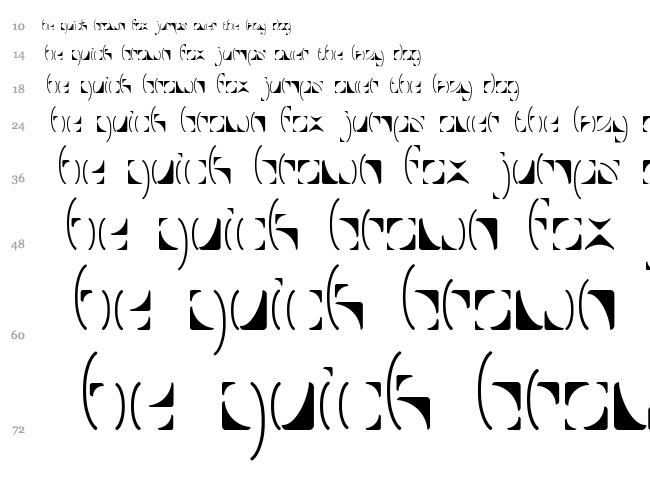 10 he quick brown fox jumps over the lazy dog
14 he quick brown fox jumps over the lazy dog
18 he quick brown fox jumps over the lazy dog
24 he quick brown fox jumps over the lazy
36 he quick brown fox jumps
48 he quick brown fox
60 he quick brown
72 he quick bro